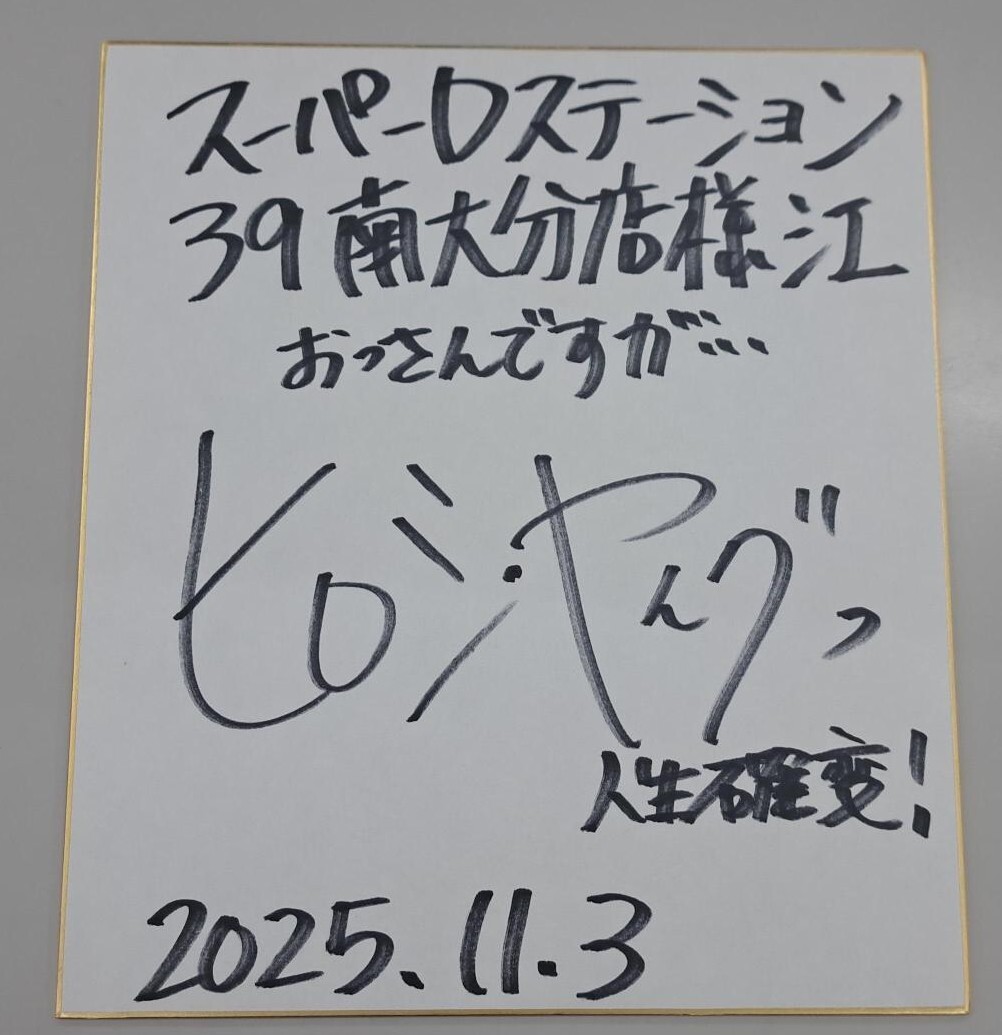 スーパーDステーション
39南大分店様江
おっさんですが…
ヒロシ・ヤングっ
人生確変!
2025.11.3